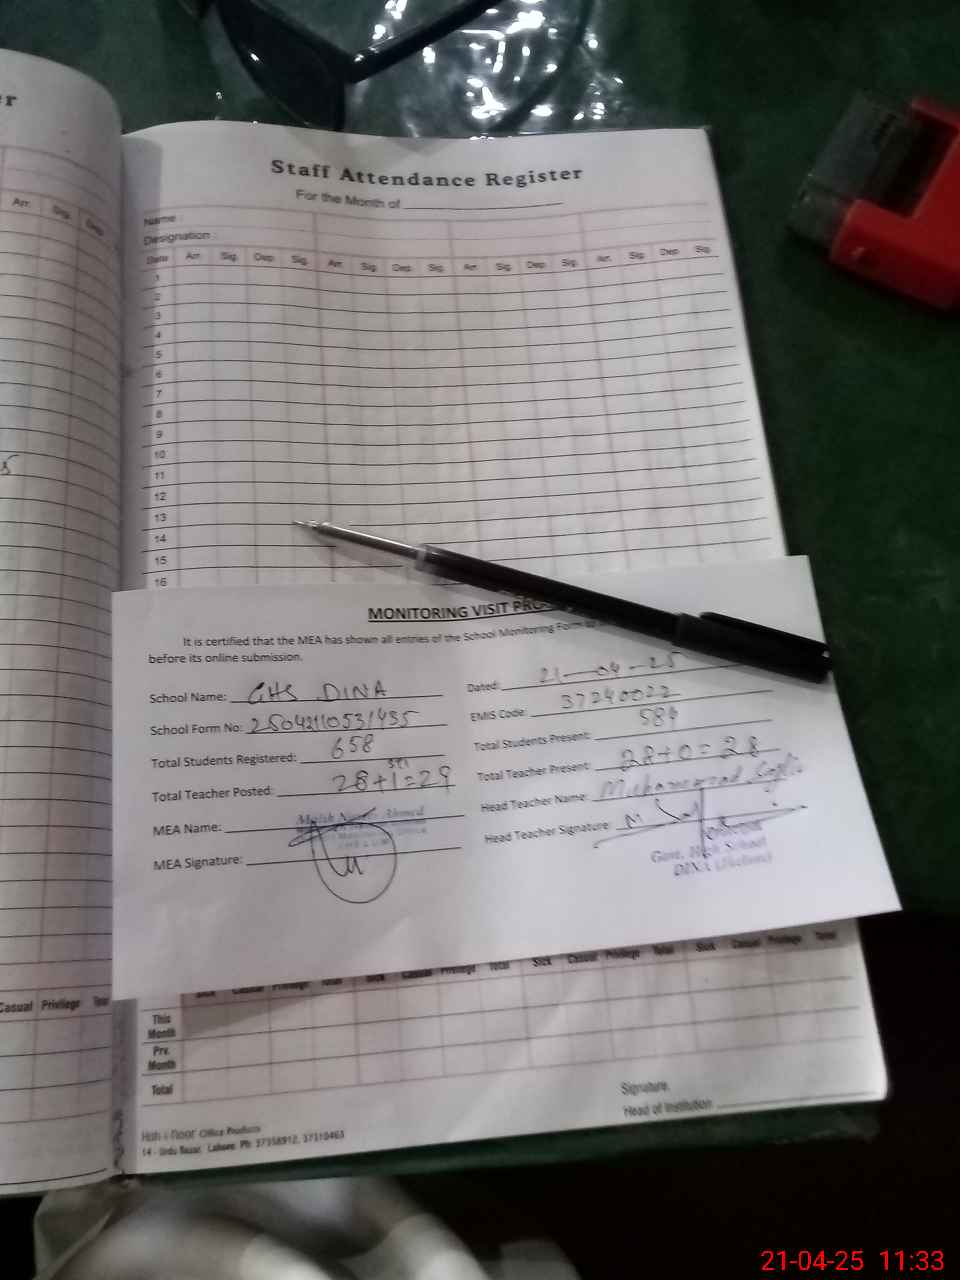 Staff Attendance Register
For the Month of
Name :
Designation :
Date Arr. Sig. Dep. Sig. Arr. Sig. Dep. Sig. Arr. Sig. Dep. Sig. Arr. Sig. Dep. Sig.
1
2
3
4
5
6
7
8
9
10
11
12
13
14
15
16
Arr. Sig. Dep.
MONITORING VISIT
It is certified that the MEA has shown all entries of the School Monitoring Form to
before its online submission.
School Name: GHS DINA
Dated: 21-04-25
School Form No:
EMIS Code: 37240022
Total Students Registered: 658
Total Students Present: 584
Total Teacher Posted: 28+1=29
Total Teacher Present: 28+0=28
MEA Name:
Head Teacher Name: Muhammad
MEA Signature:
Head Teacher Signature:
Govt. High School
DINA (Jhelum)
Sick Casual Privilege Total Sick Casual Privilege Total Sick Casual Privilege Total Sick Casual Privilege Total
Casual Privilege Total
This
Month
Prv.
Month
Total
Signature.
Head of Institution
Koh-i-noor Office Products
14 - Urdu Bazar, Lahore. Ph: 37358912, 37310463
21-04-25 11:33